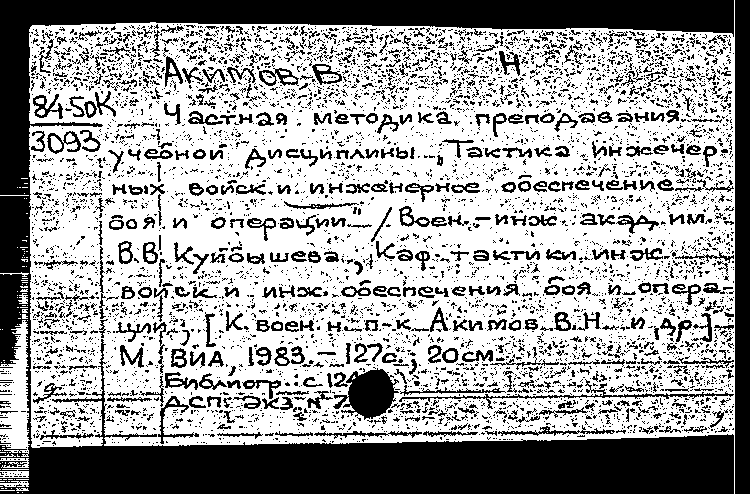 Акимов, В Н
84-50К
3093
Частная методика преподавания
учебной дисциплины „Тактика инженер-
ных войск и инженерное обеспечение
боя и операции" / Воен.-инж. акад. им.
В.В. Куйбышева, Каф. тактики инж.
войск и инж. обеспечения боя и опера-
ции ; [К. воен. н. п-к Акимов В.Н. и др.]
М.: ВИА, 1983. – 127с.; 20см.
Библиогр.: с.
ДСП. Экз. №